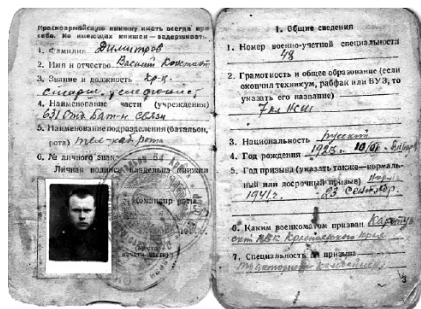 Красноармейскую книжку иметь всегда при
себе. Не имеющих книжек — задерживать.
1. Фамилия Димитров
2. Имя и отчество Василий
3. Звание и должность кр-ц.
4. Наименование части (учреждения)
631 Отд. Бат-н Связи
5. Наименование подразделения (батальон,
рота) тел-каб. рота
6. № личного знака
Личная подпись владельца книжки
Командир роты
I. Общие сведения
1. Номер военно-учетной специальности
48
2. Грамотность и общее образование (если
окончил техникум, рабфак или ВУЗ, то
указать его название)
7 кл НСШ
3. Национальность Русский
4. Год рождения
5. Год призыва (указать также—нормаль-
ный или досрочный призыв)
1941 г. 23
6. Каким военкоматом призван
РВК Красноярского края
7. Специальность до призыва
3